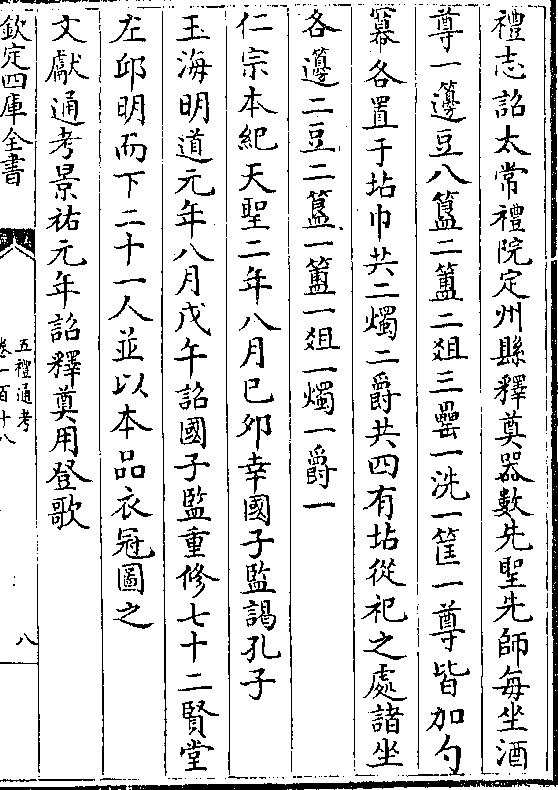 禮志詔太常禮院定州縣釋奠器數先聖先師每坐酒
尊一籩豆八簋二簠二俎三罍一洗一篚一尊皆加勺
冪各置于坫巾共二燭二爵共四有坫從祀之處諸坐
各籩二豆二簋一簠一俎一燭一爵一
仁宗本紀天聖二年八月己卯幸國子監謁孔子
玉海明道元年八月戊午詔國子監重修七十二賢堂
左邱明而下二十一人並以本品衣冠圖之
文獻通考景祐元年詔釋奠用登歌
欽定四庫全書
五禮通考
卷一百十八
八